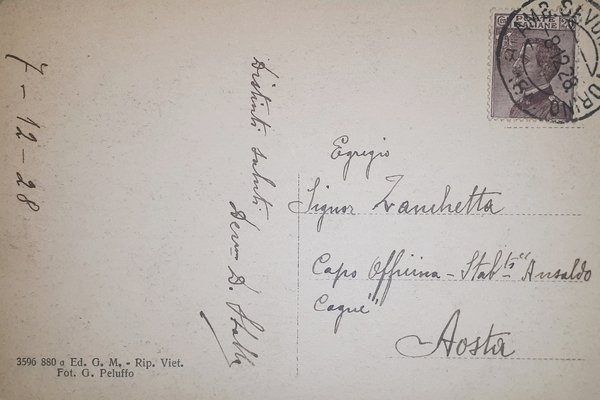 7-12-28
Distinti saluti
Dev.mo D. Stella
3596 880 a Ed. G. M. - Rip. Viet.
Fot. G. Peluffo
POSTE
ITALIANE
8.12.28
TORINO
Egregio
Signor Zanchetta
Capo Officina - Stab.ti "Ansaldo
Cogne"
Aosta